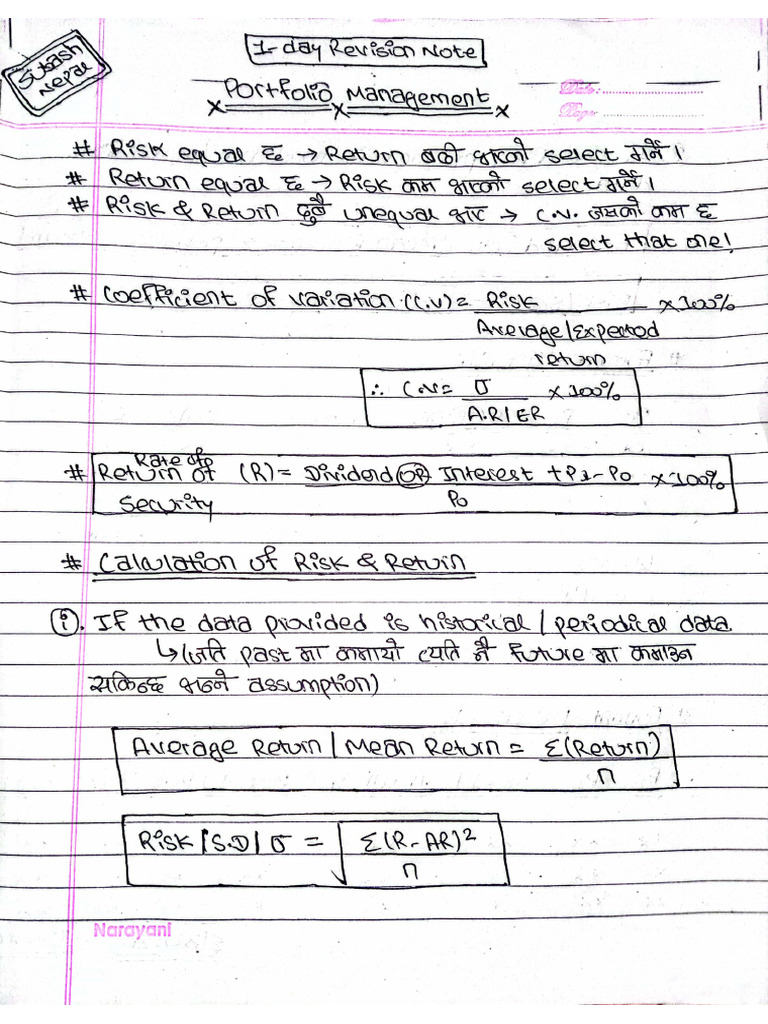 1-day Revision Note
Subash
Nepal
Portfolio Management
Date:
Page:
# Risk equal छ → Return बढी भएको select गर्ने।
# Return equal छ → Risk कम भएको select गर्ने।
# Risk & Return दुवै unequal भए → C.V. जसको कम छ
select that one!
# Coefficient of variation (C.V) = Risk x 100%
Average/Expected
return
∴ C.V = σ x 100%
A.R/ER
# Rate of
Return of (R) = Dividend OR Interest + P1 - P0 x 100%
Security P0
# Calculation of Risk & Return
(i). If the data provided is historical / periodical data
↳ (जति past मा कमायो त्यति नै future मा कमाउन
सकिन्छ भन्ने assumption)
Average Return / Mean Return = Σ(Return)
n
Risk / S.D / σ = √ Σ(R - AR)²
n
Narayani